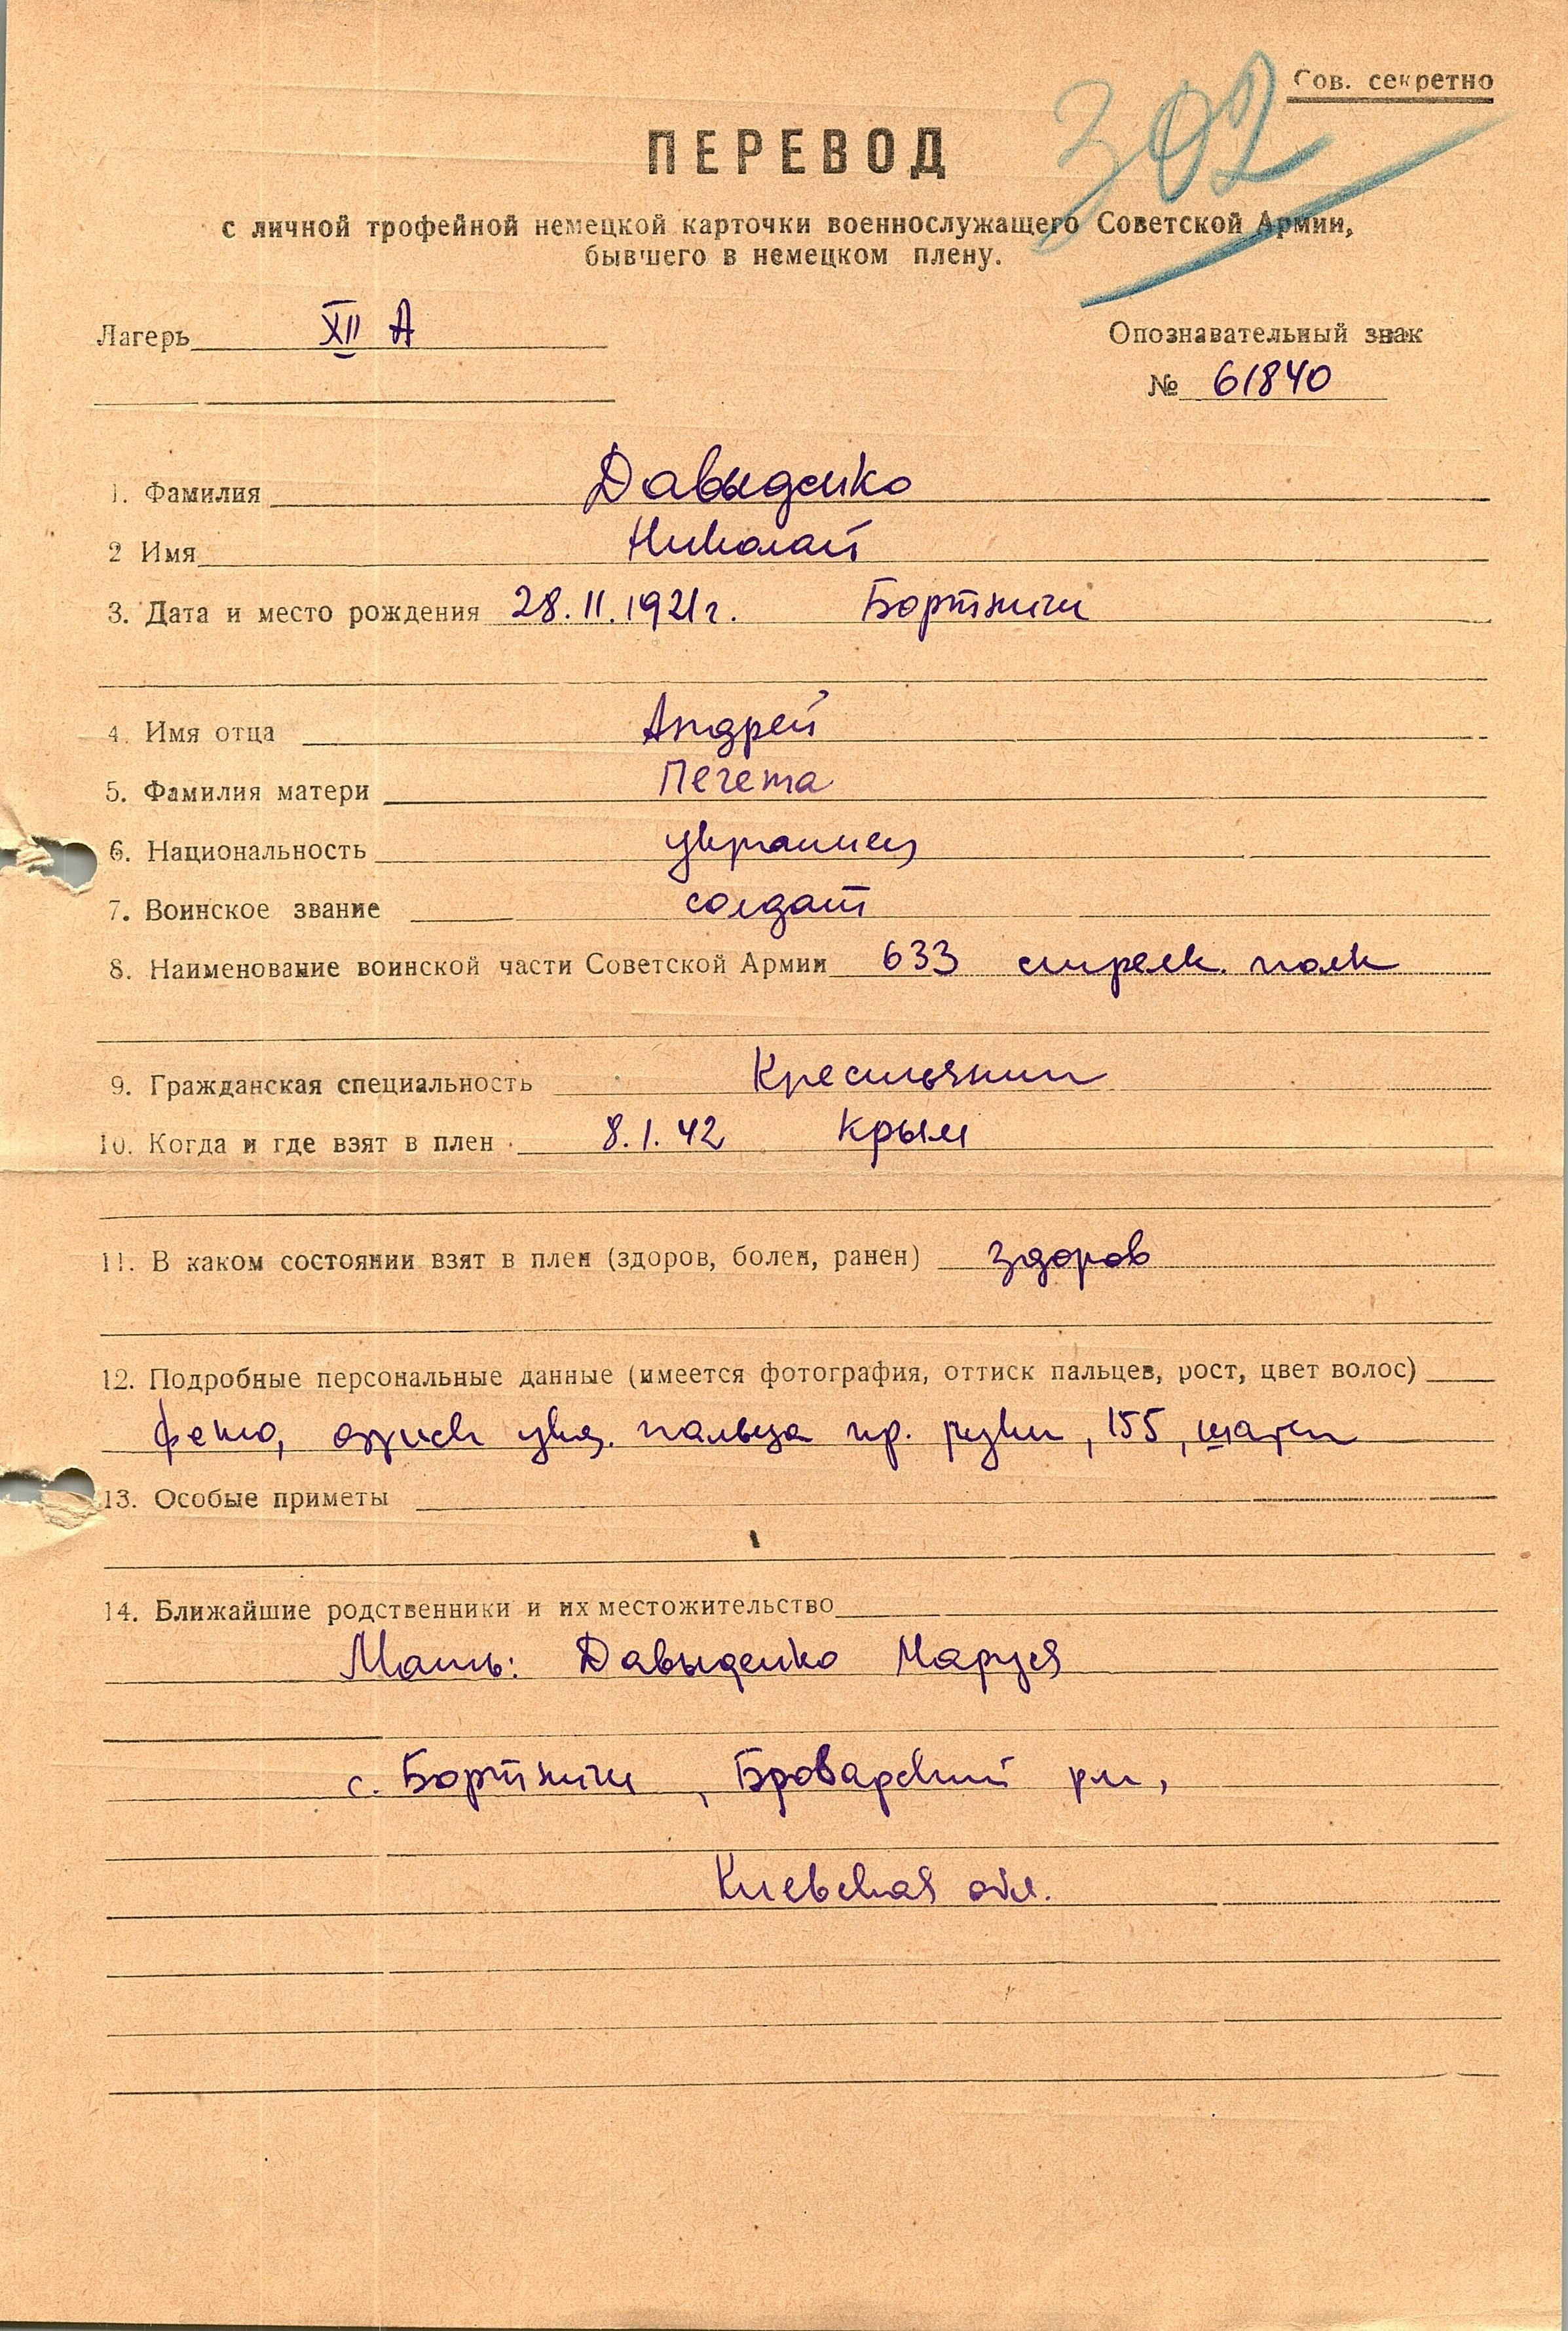 Сов. секретно
302
ПЕРЕВОД
с личной трофейной немецкой карточки военнослужащего Советской Армии,
бывшего в немецком плену.
Лагерь XII А
Опознавательный знак
№ 61840
1. Фамилия Давыденко
2 Имя Николай
3. Дата и место рождения 28.II.1921г. Бортничи
4. Имя отца Андрей
5. Фамилия матери Печета
6. Национальность украинец
7. Воинское звание солдат
8. Наименование воинской части Советской Армии 633 стрелк. полк
9. Гражданская специальность Крестьянин
10. Когда и где взят в плен 8.1.42 Крым
11. В каком состоянии взят в плен (здоров, болен, ранен) здоров
12. Подробные персональные данные (имеется фотография, оттиск пальцев, рост, цвет волос)
фото, указ. пальца пр. руки, 155,
13. Особые приметы
14. Ближайшие родственники и их местожительство
Мать: Давыденко Маруся
с. Бортничи, Броварский рн,
Киевская обл.